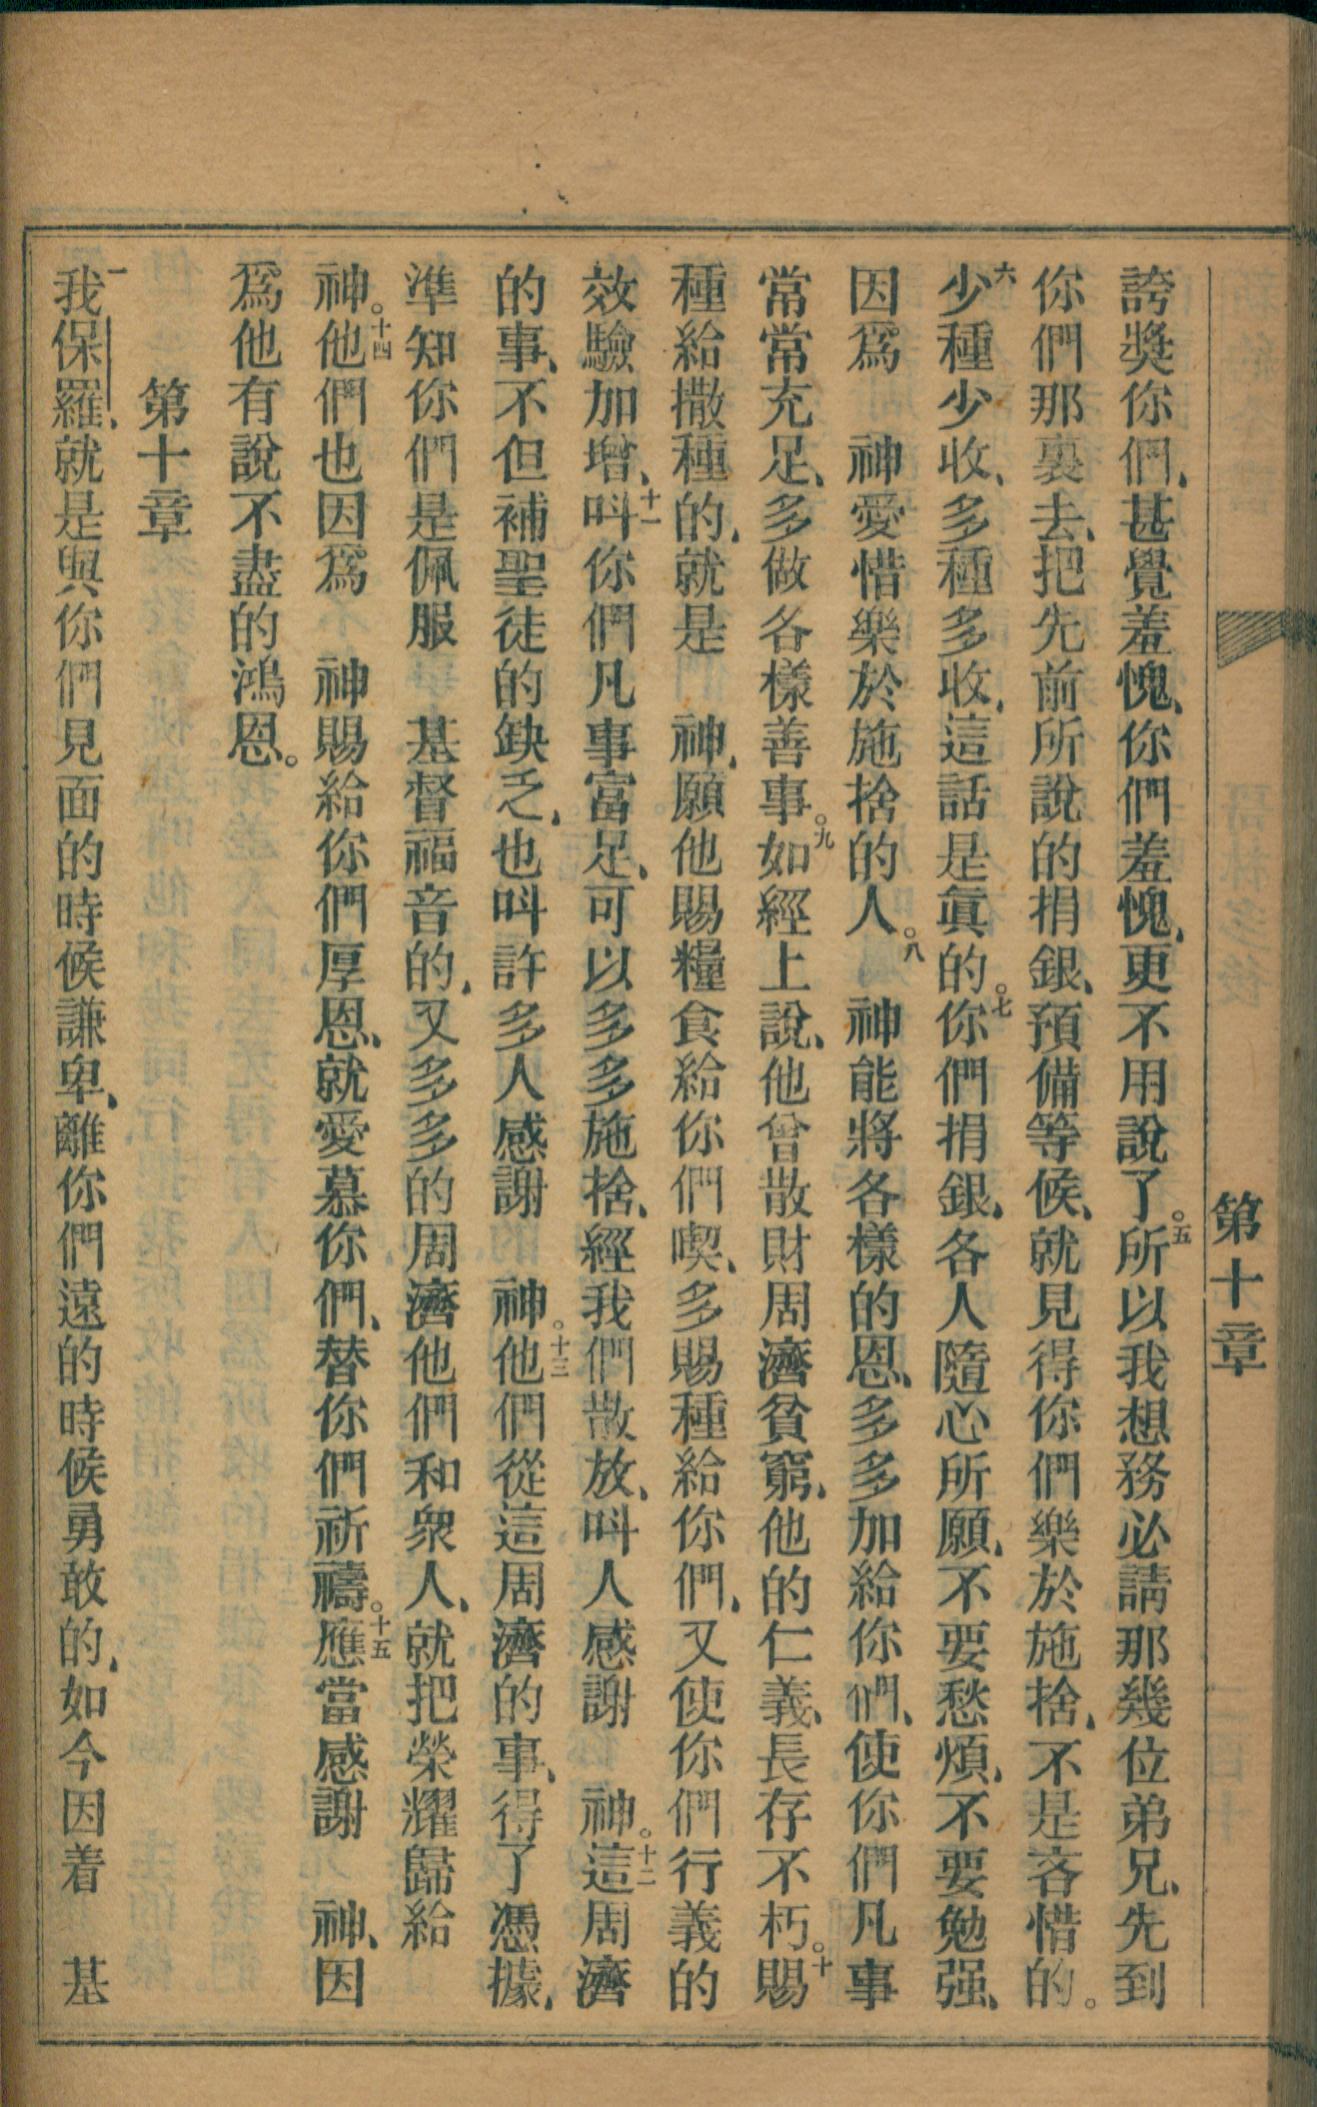 第十章
誇奬你們、甚覺羞愧、你們羞愧、更不用說了。五所以我想務必請那幾位弟兄、先到
你們那裏去、把先前所說的捐銀、預備等候、就見得你們樂於施捨、不是吝惜的。
六少種少收、多種多收、這話是眞的。七你們捐銀、各人隨心所願、不要愁煩、不要勉强、
因爲　神愛惜樂於施捨的人。八　神能將各樣的恩、多多加給你們、使你們凡事
常常充足、多做各樣善事。九如經上說、他曾散財周濟貧窮、他的仁義、長存不朽。十賜
種給撒種的、就是　神、願他賜糧食給你們喫、多賜種給你們、又使你們行義的
效驗加增、十一呌你們凡事富足、可以多多施捨、經我們散放、呌人感謝　神。十二這周濟
的事、不但補聖徒的缺乏、也呌許多人感謝　神。十三他們從這周濟的事、得了憑據、
準知你們是佩服　基督福音的、又多多的周濟他們和衆人、就把榮耀歸給
神。十四他們也因爲　神賜給你們厚恩、就愛慕你們、替你們祈禱。十五應當感謝　神、因
爲他有說不盡的鴻恩。
第十章
一我保羅、就是與你們見面的時候謙卑、離你們遠的時候勇敢的、如今因着　基